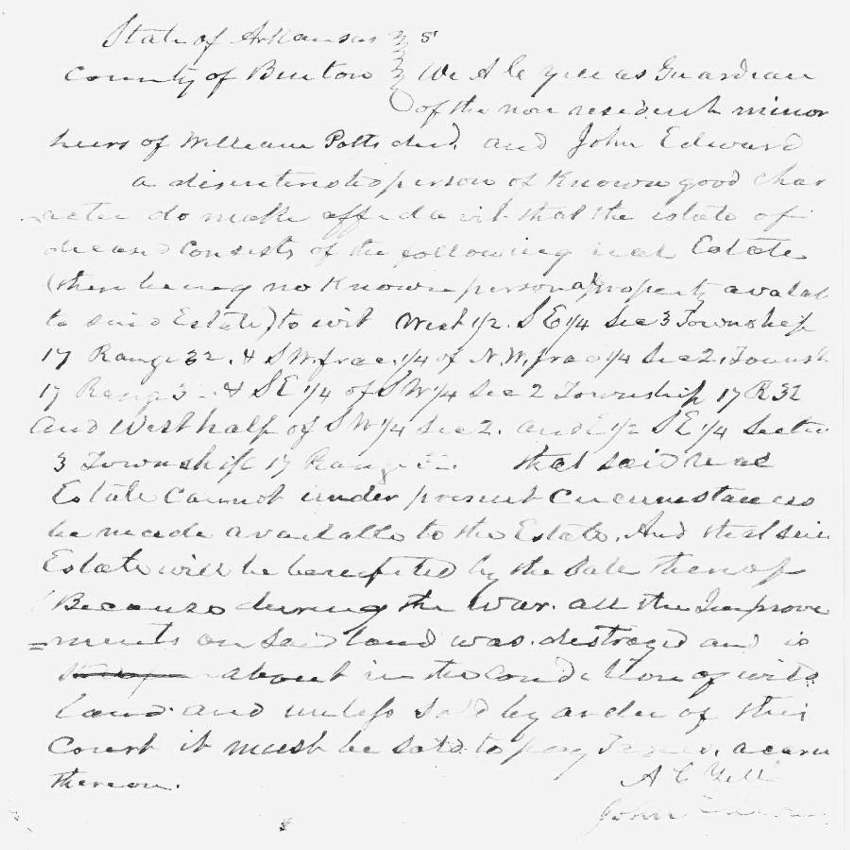 State of Arkansas } S
County of Benton } We A C Yell as Guardian
of the non resident minor
heirs of William Potts decd. and John Edward
a disinterested person of Known good char
acter do make affidavit that the estate of
deceased consists of the following real Estate
(there being no Known personal property availabl
to said Estate) to wit West 1/2. S E 1/4 Sec 3 Township
17 Range 32. & S W. frac. 1/4 of N. W. frac 1/4 Sec 2. Townsh
17 Range 3 & S E 1/4 of S W 1/4 Sec 2 Township 17 R 32
and West half of S W 1/4 Sec 2. and E 1/2 S E 1/4 Sectio
3 Township 17 Range that said real
Estate cannot under present circumstances
be made available to the Estate. And that said
Estate will be benefited by the Sale thereof
Because during the war. all the Improve
=ments on said land was destroyed and is
about in the condition of wild
land and unless sold by order of this
Court it must be sold to pay Taxes. accru
thereon.
A C Yell
John